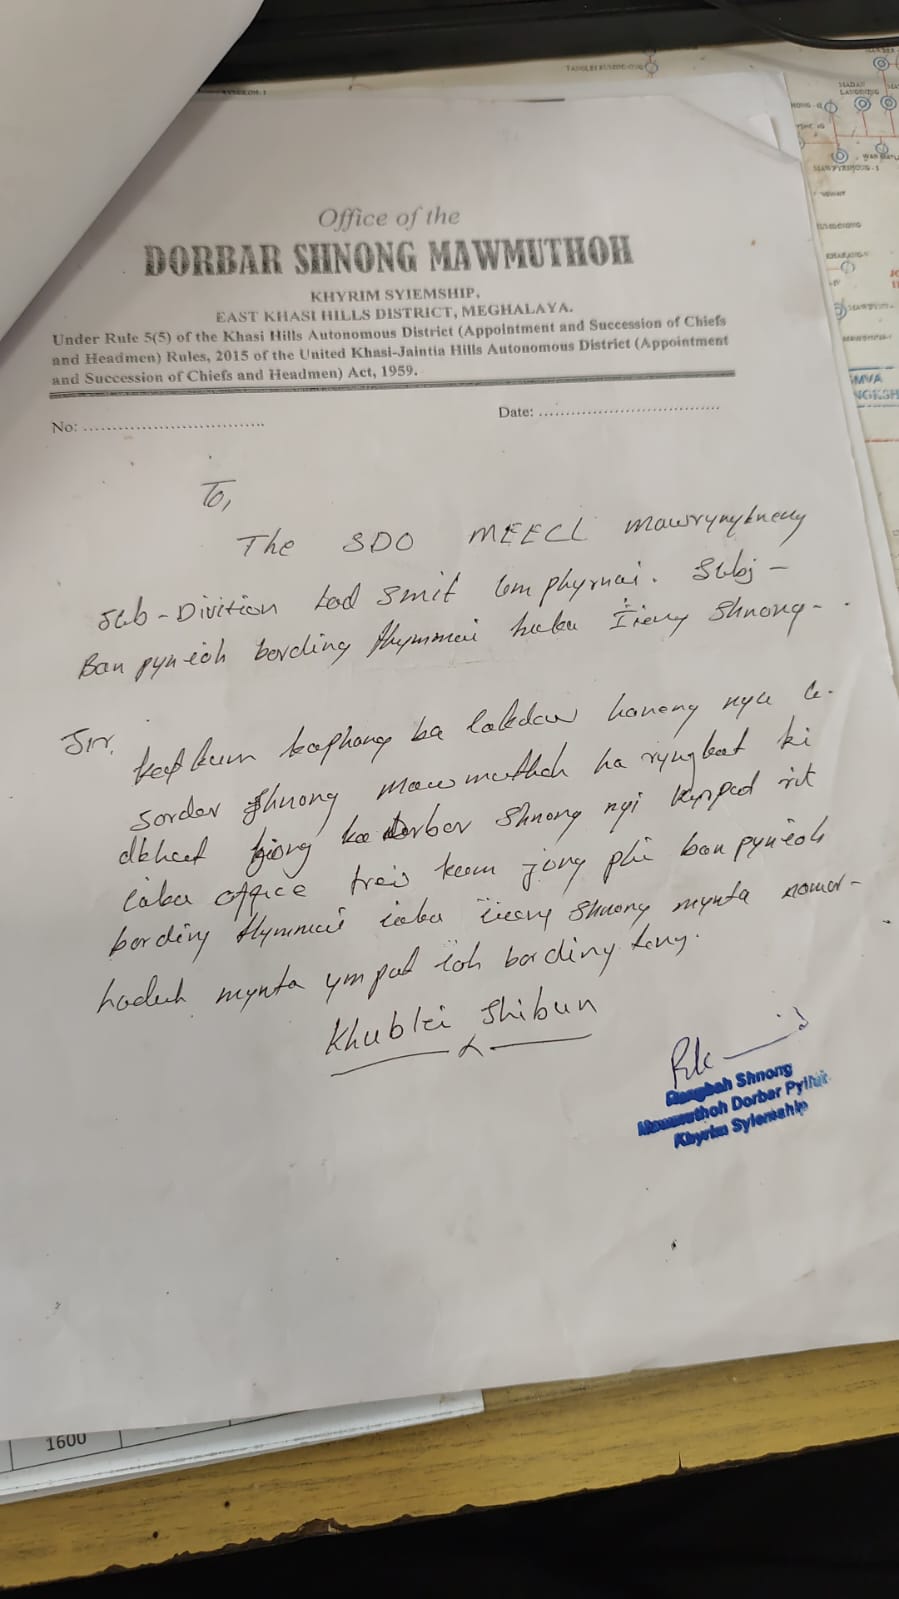 Office of the
DORBAR SHNONG MAWMUTHOH
KHYRIM SYIEMSHIP,
EAST KHASI HILLS DISTRICT, MEGHALAYA.
Under Rule 5(5) of the Khasi Hills Autonomous District (Appointment and Succession of Chiefs
and Headmen) Rules, 2015 of the United Khasi-Jaintia Hills Autonomous District (Appointment
and Succession of Chiefs and Headmen) Act, 1959.
No: ..............................
Date: .................................
To,
The SDO MEECL Mawrynkneng
Sub-Division Lad Smit Lum phyrnai. Subj-
Ban pynioh bording thymmai Ïieng Shnong-
Sir,
kaphang ba lakdaw haneng nga u
sordar Shnong Mawmuthoh ha ryngkat ki
dkhot jong ka dorbar Shnong ngi kyrpad rit
ïaka office trei kam jong phi ban pynioh
bording thymmai ïaka ïieng Shnong mynta namar-
haduh mynta ympat ïoh bording
Khublei Shibun
Rangbah Shnong
Mawmuthoh Dorbar
Khyrim Syiemship
TANGLEI
MADAN
MAWPYRSHONG-1
1600